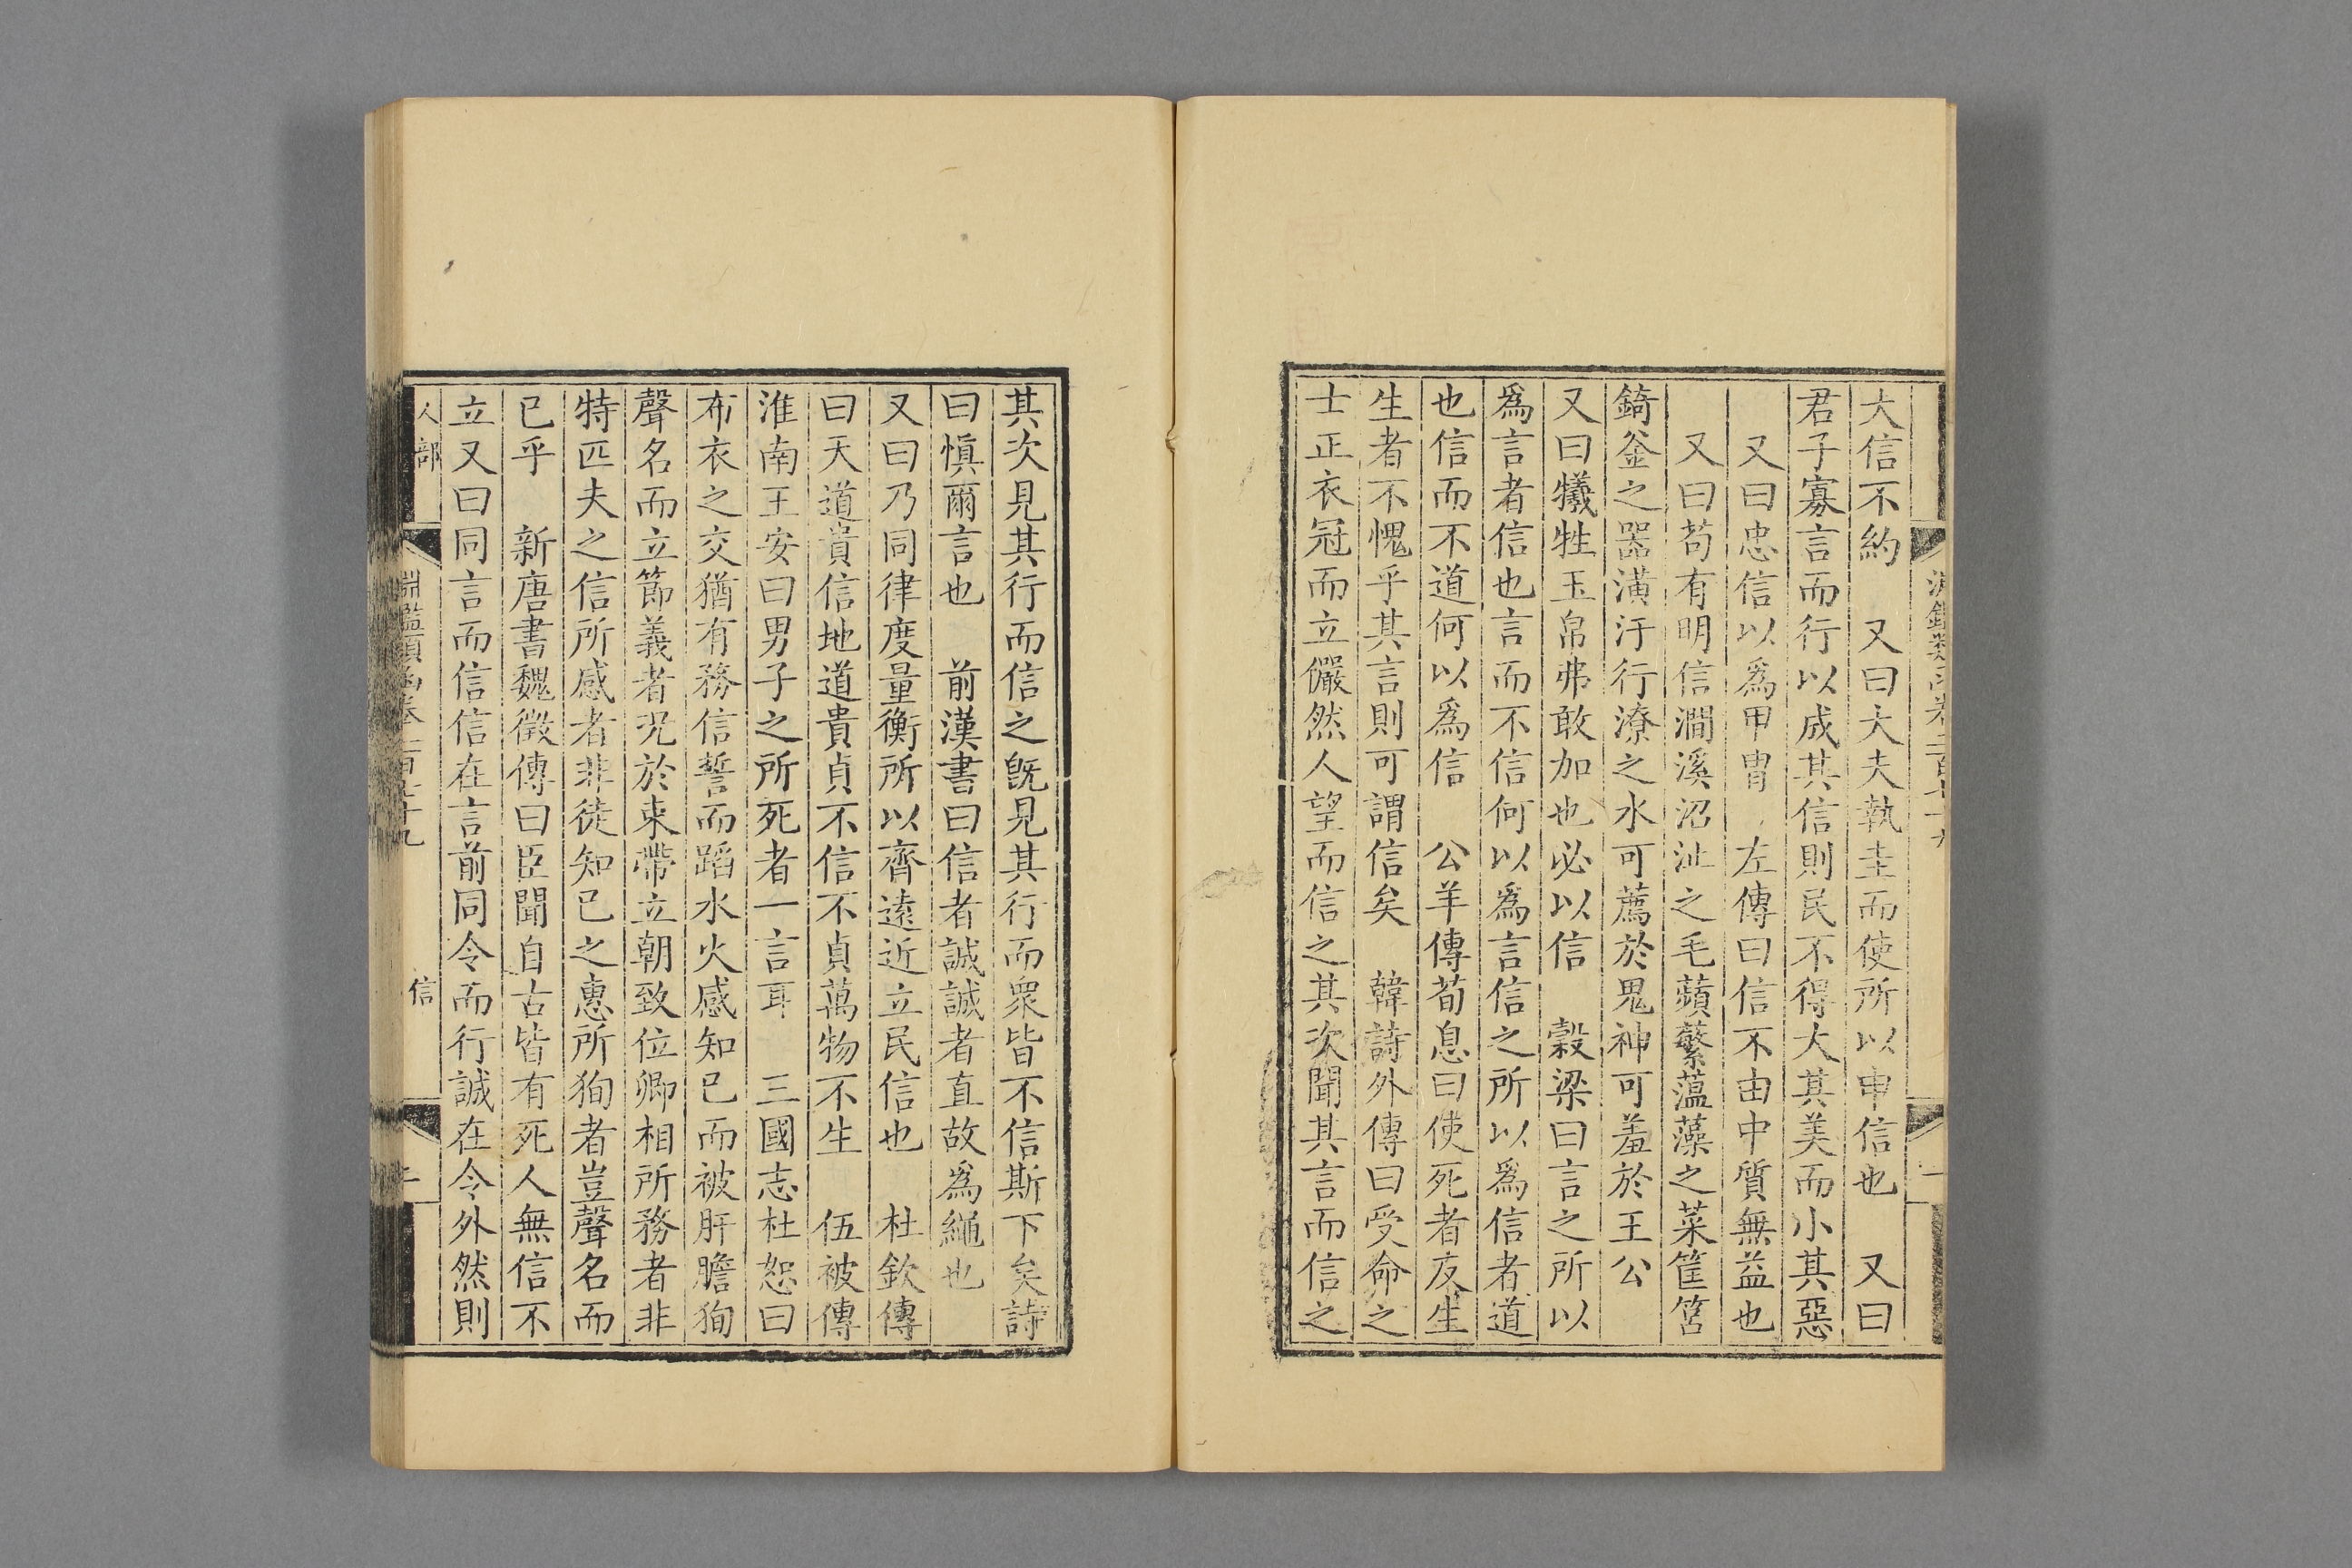 大信不約　又曰大夫執圭而使所以申信也　又曰
君子寡言而行以成其信則民不得大其美而小其惡
又曰忠信以爲甲胄　左傳曰信不由中質無益也
又曰苟有明信澗溪沼沚之毛蘋蘩薀藻之菜筐筥
錡釜之器潢汙行潦之水可薦於鬼神可羞於王公
又曰犧牲玉帛弗敢加也必以信　穀梁曰言之所以
爲言者信也言而不信何以爲言信之所以爲信者道
也信而不道何以爲信　公羊傳荀息曰使死者反生
生者不愧乎其言則可謂信矣　韓詩外傳曰受命之
士正衣冠而立儼然人望而信之其次聞其言而信之
其次見其行而信之旣見其行而衆皆不信斯下矣詩
曰愼爾言也　前漢書曰信者誠誠者直故爲繩也
又曰乃同律度量衡所以齊遠近立民信也　杜欽傳
曰天道貴信地道貴貞不信不貞萬物不生　伍被傳
淮南王安曰男子之所死者一言耳　三國志杜恕曰
布衣之交猶有務信誓而蹈水火感知已而被肝膽狥
聲名而立節義者况於束帶立朝致位卿相所務者非
特匹夫之信所感者非徒知已之惠所狥者豈聲名而
已乎　新唐書魏徵傳曰臣聞自古皆有死人無信不
立又曰同言而信信在言前同令而行誠在令外然則
人部　淵鑑類函卷二百七十九　信